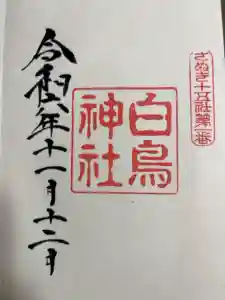 さぬき十五社第一番
白鳥
神社
令和六年十一月十二日